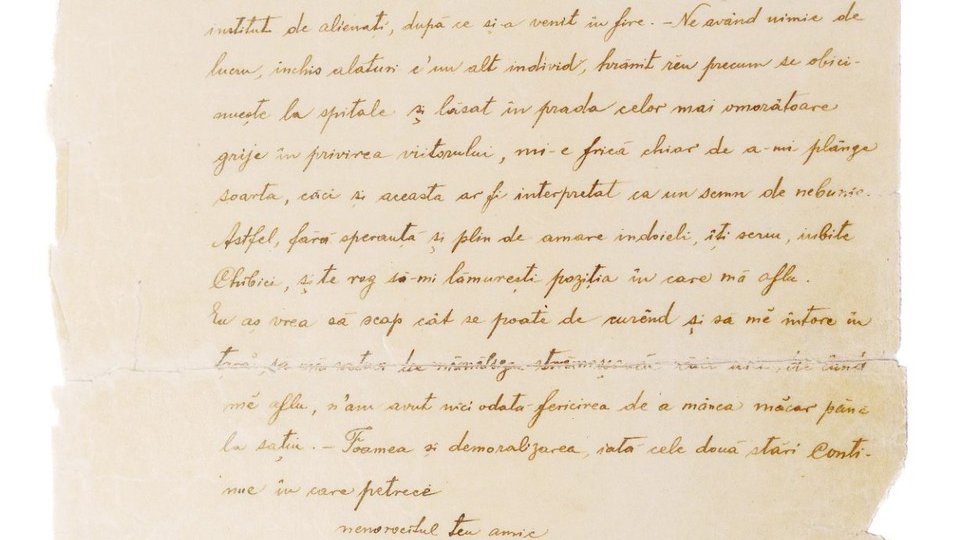 institut de alienați, după ce și-a venit în fire. - Ne având nimic de
lucru, închis alături c'un alt individ, hrănit rĕu precum se obici-
nuește la spitale și lăsat în prada celor mai omorâtoare
grije în privirea viitorului, mi-e frică chiar de a-mi plânge
soarta, căci și aceasta ar fi interpretat ca un semn de nebunie.
Astfel, fără speranță și plin de amare îndoieli, îți scriu, iubite
Chibici, și te rog să-mi lămurești poziția în care mă aflu.
Eu aș vrea să scap cât se poate de curênd și să mĕ întorc în
țară, să mă satur de mămăliga strămoșească căci aici, de când
mĕ aflu, n'am avut nici odată fericirea de a mânca măcar pâne
la sațiu. - Foamea și demoralizarea, iată cele două stări conti-
nue în care petrece
nenorocitul tĕu amic